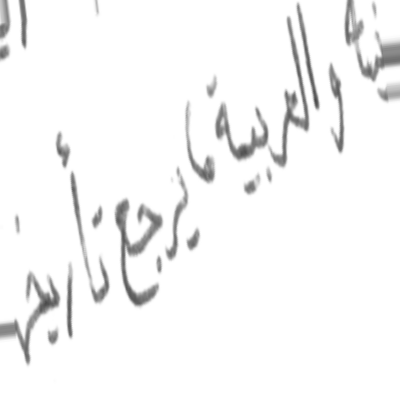 والعربية ما يرجع تأريخ